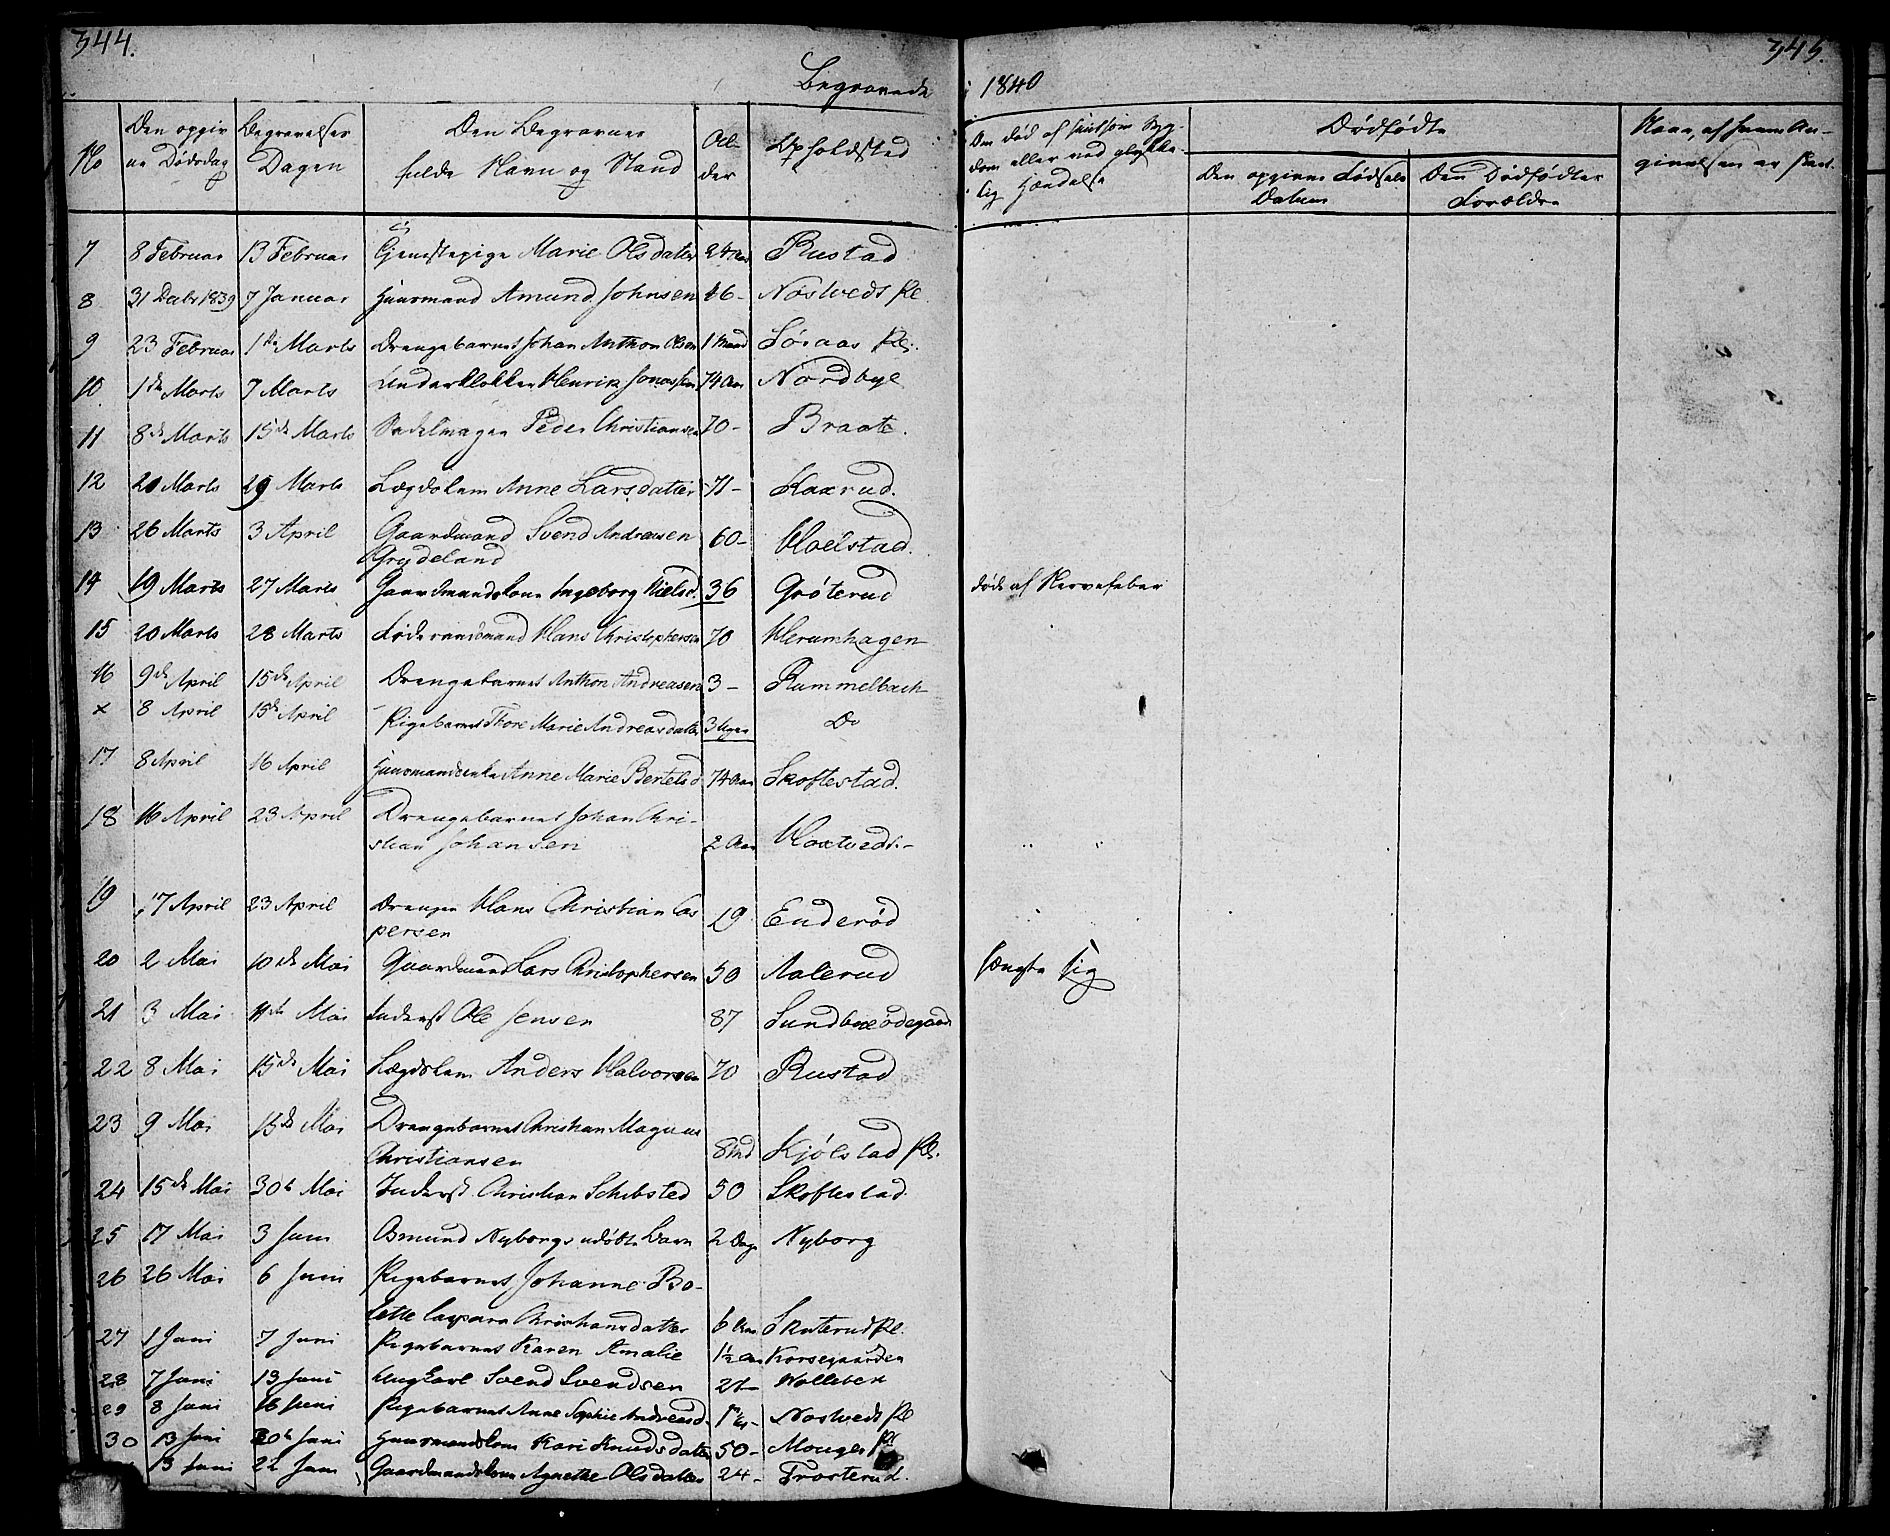 344.
345.
Begravede
1840
No
Den opgiv
ne Dødsdag
Begravelses
Dagen
Den Begravnes
fulde Navn og Stand
Al-
der
Opholdsted
Om død af smitsom Syg-
dom eller ved ulykke-
lig Hændelse
Dødfødte
Den opgivne Fødsels
Datum
Den Dødfødtes
Forældre
Naar, af hvem An-
givelsen er skeet
7 8 Februar 13 Februar Tjenestepige Marie Olsdatter 24 Aar Rustad
8 31 Decbr 1839 7 Januar Huusmand Amund Johnsen 46- Nøstvedt Pl.
9 23 Februar 1ste Marts Drengebarnet Johan Anthon Olsen 1 Maaned Søraas Pl.
10 1ste Marts 7 Marts Underklokker Henrik Jonassen 74 Aar Nordbye
11 8de Marts 15de Marts Sadelmager Peder Christiansen 70- Braate.
12 20 Marts 29 Marts Lægdslem Anne Larsdatter 71- Kaxrud.
13 26 Marts 3 April Gaardmand Svend Andreasen 60- Moelstad.
Grydeland
14 19 Marts 27 Marts Gaardmandskone Ingeborg Nielsd. 36 Grøterud død af Nervefeber
15 20 Marts 28 Marts Føderaadsmand Hans Christophersen 70 Herumhagen
16 9de April 15de April Drengebarnet Anthon Andreasen 3- Rummelbach
x 8 April 15de April Pigebarnet Thore Marie Andreasdatter 3 Uger Do
17 8 April 16 April Huusmandsenke Anne Marie Bertelsd. 74 Aar Skoftestad.
18 16 April 23 April Drengebarnet Johan Chri-
stian Johansen 2 Aar Hoxtvedt.-
19 17 April 23 April Drengen Hans Christian Cas
persen 19 Enderød
20 2 Mai 10de Mai Gaardmand Lars Christophersen 50 Aalerud hængte sig
21 3 Mai 11te Mai Inderst Ole Jensen 87 Sundbyeødegaard
22 8 Mai 15de Mai Lægdslem Anders Halvorsen 70 Rustad
23 9 Mai 15de Mai Drengebarnet Christian Magnus
Christiansen 8 Md Kjølstad Pl.
24 15de Mai 30te Mai Inderst Christian Schibsted 50 Skoftestad.
25 17 Mai 3 Juni Osmund Nyborgs udøbte Barn 2 Dage Nyborg
26 26 Mai 6 Juni Pigebarnet Johanne Bo-
lette Caspara Christiansdatter 6 Aar Skuterud Pl.
27 1 Juni 7 Juni Pigebarnet Karen Amalie 1½ Aar Korsegaarden
28 7 Juni 13 Juni Ungkarl Svend Svendsen 21- Holleben
29 8 Juni 16 Juni Pigebarnet Anne Sophie Andreasd. Nøstvedt Pl
30 13 Juni 20te Juni Huusmandskone Kari Knudsdatter 50- Monger Pl
13 Juni 22 Juni Gaardmandskone Agnethe Olsdatter 24- Frosterud.